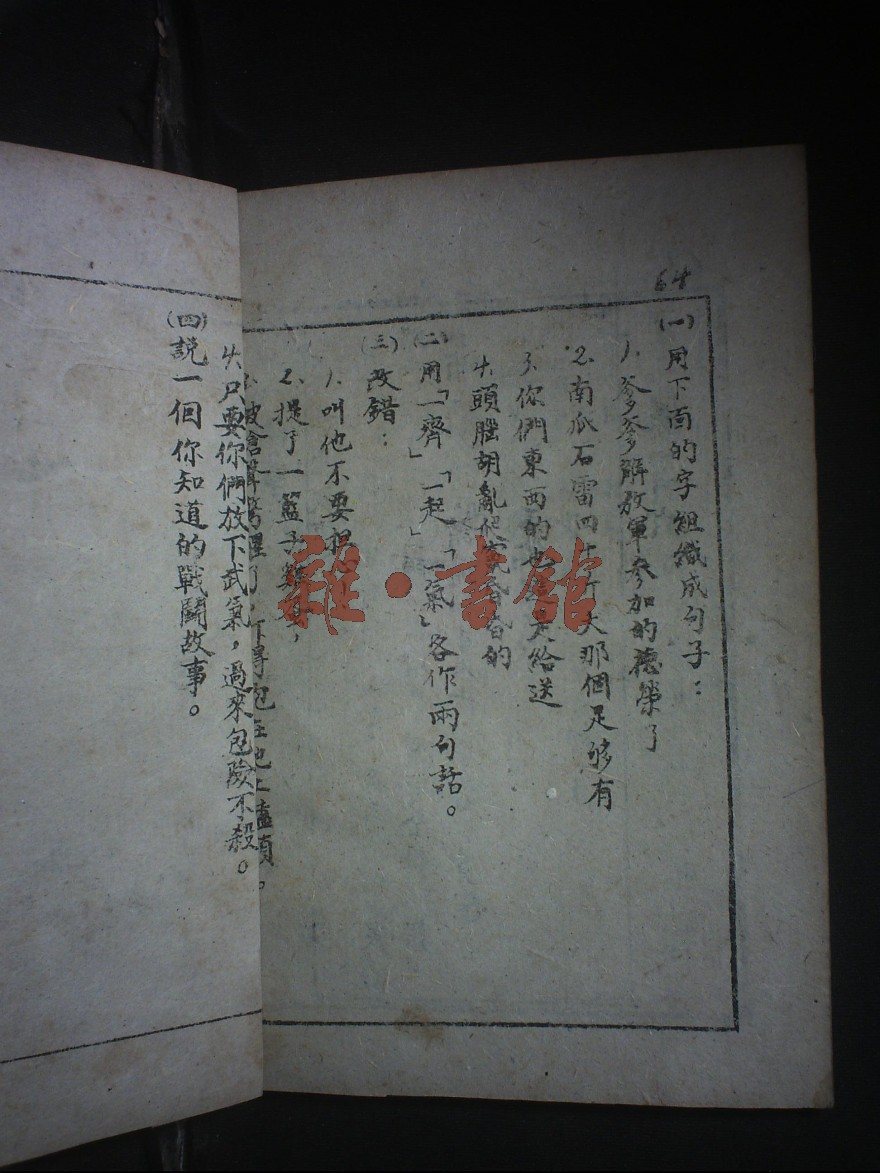 64
(一)用下面的字組織成句子：
1、爹爹解放軍參加的德榮了
2、南瓜石雷四十斤大那個足够有
3、你們東西的也是給送
4、頭腦胡亂昏的
(二)用「一齊」「一起」「一氣」各作兩句話。
(三)改錯：
1、叫他不要把
2、提了一籃子
3、被槍聲驚醒在地上磕頭。
4、只要你們放下武氣，過來包險不殺。
(四)説一個你知道的戰鬪故事。
雜·書館